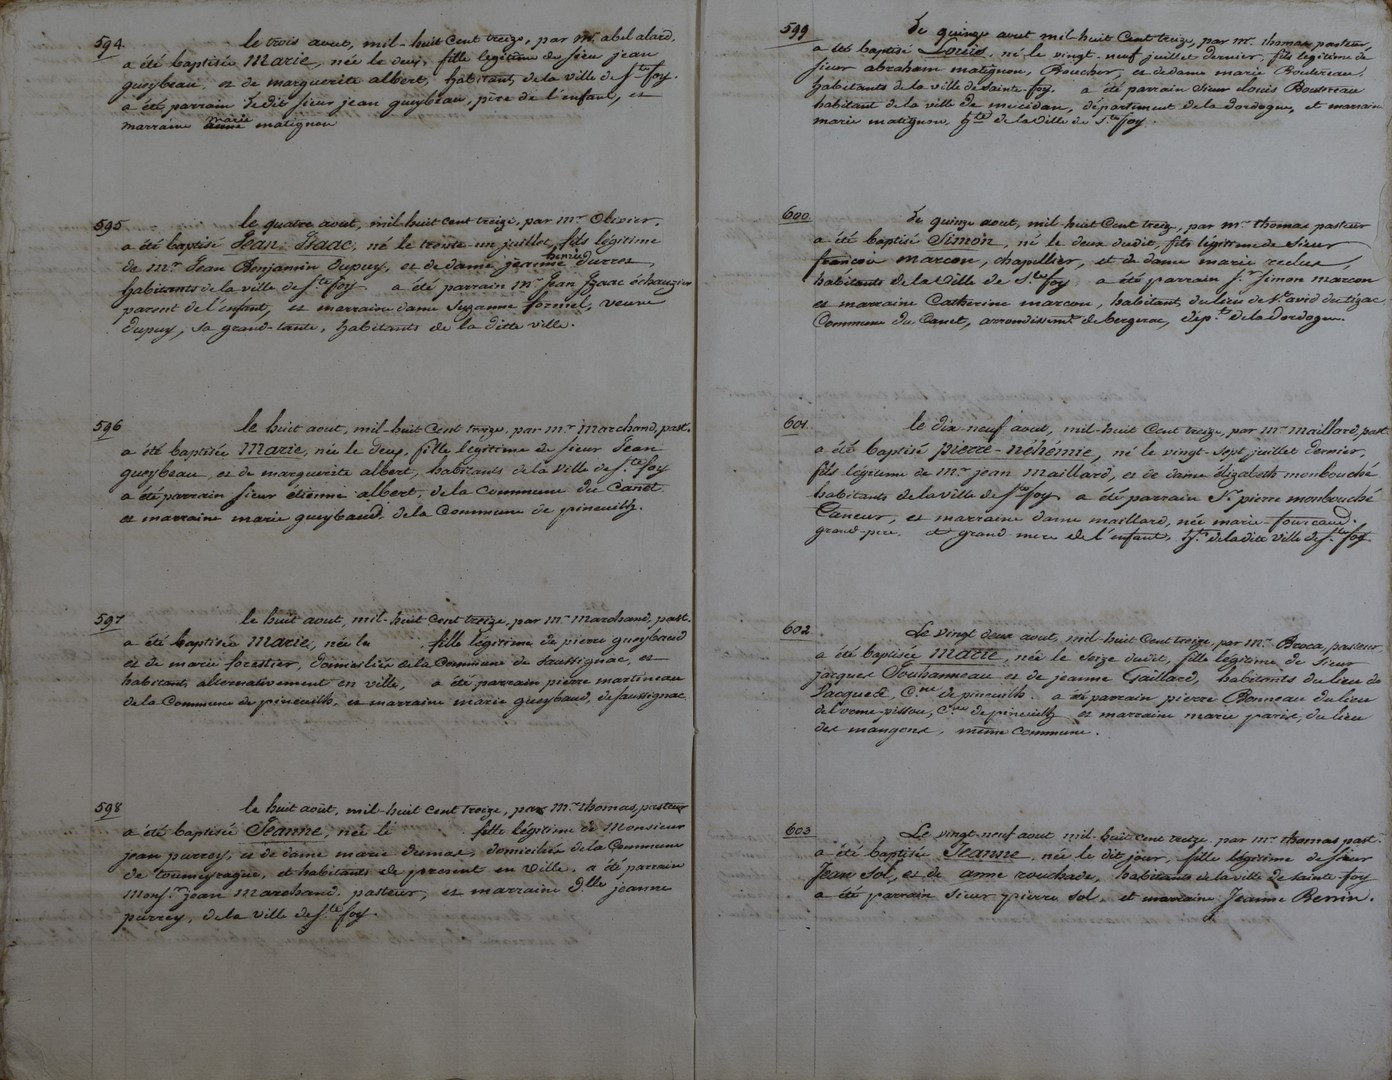 594
le trois aout, mil-huit cent treize, par mr. abel alard,
a été baptisée Marie, née le deux, fille legitime de sieu jean
gueybeau, et de marguerite albert, habitants de la ville de Ste foy.
a été parrain le dit sieur jean gueybeau, père de l'enfant, et
marraine anne marie matignon
595
le quatre aout, mil-huit cent treize, par mr. Olivier,
a été baptisé Jean Isaac, né le trente-un juillet, fils légitime
de mr. Jean Benjamin dupuy, et de dame
habitants de la ville de Ste foy. a été parrain mr. Jean Isaac échauzier
parent de l'enfant, et marraine dame Suzanne formel, veuve
dupuy, sa grand-tante, habitants de la ditte ville.
596
le huit aout, mil-huit cent treize, par mr. marchand, past.
a été baptisée Marie, née le deux, fille legitime de sieur Jean
gueybeau, et de marguerite albert, habitants de la ville de Ste foy
a été parrain sieur étienne albert, de la commune du Canet
et marraine marie gueybaud, de la commune de pineuilh.
597
le huit aout, mil-huit cent treize, par mr. marchand, past.
a été baptisée Marie, née le , fille légitime de pierre gueybaud
et de marie forestier, domiciliés de la commune de saussignac, et
habitants alternativement en ville, a été parrain pierre martineau
de la commune de pineuilh, et marraine marie gueybaud, de saussignac
598
le huit aout, mil-huit cent treize, par mr. thomas, pasteur
a été baptisée Jeanne, née le fille légitime de Monsieur
jean purrey, et de dame marie dumas, domiciliés de la commune
de toumeyrague, et habitants de présent en ville. a été parrain
Monsr. jean marchand, pasteur, et marraine dlle jeanne
purrey, de la ville de Ste foy.
599
Le quinze aout mil-huit cent treize, par mr. thomas, pasteur,
a été baptisé Louis, né le vingt-neuf juillet dernier, fils legitime de
sieur abraham matignon, Boucher, et de dame marie Boutereau,
habitants de la ville de sainte-foy. a été parrain sieur Louis Boutereau
habitant de la ville de mucidan, département de la dordogne, et marraine
marie matignon, hte de la ville de Ste foy.
600
Le quinze aout, mil-huit cent treize, par mr. thomas pasteur
a été baptisé Simon, né le deux dudit, fils légitime de sieur
francois marcon, chapellier, et de dame marie reclus,
habitants de la ville de Ste foy a été parrain sr. simon marcon
et marraine Catherine marcon, habitant du lieu de St avid du tizac
Commune du Canet, arrondissemt. de bergerac, dépt. de la dordogne.
601
le dix-neuf aout, mil-huit cent treize, par mr. maillard, past.
a été baptisé pierre-néhémie, né le vingt-sept juillet dernier,
fils légitime de mr. jean maillard, et de dame élizabeth monbouché
habitants de la ville de Ste foy a été parrain Sr. pierre monbouché
taneur, et marraine dame maillard, née marie fourcaud.
grand-pere et grand mere de l'enfant, hts. de la dite ville de Ste foy
602
Le vingt deux aout, mil-huit cent treize, par mr. Broca, pasteur
a été baptisée marie, née le seize dudit, fille légitime de sieur
jacques Touhanneau et de jeanne Gaillard, habitants du lieu de
Cne de pineuilh. a été parrain pierre Bonneau du lieu
de l'orme-pissou, Cne de pineuilh et marraine marie paris, du lieu
des mangons, même commune.
603
Le vingt-neuf aout mil huit cent treize par mr. thomas past.
a été baptisée Jeanne née le dit jour, fille légitime de sieur
Jean Sol, et de anne rouchade, habitants de la ville de sainte-foy
a été parrain sieur pierre sol, et marraine Jeanne Perrin.